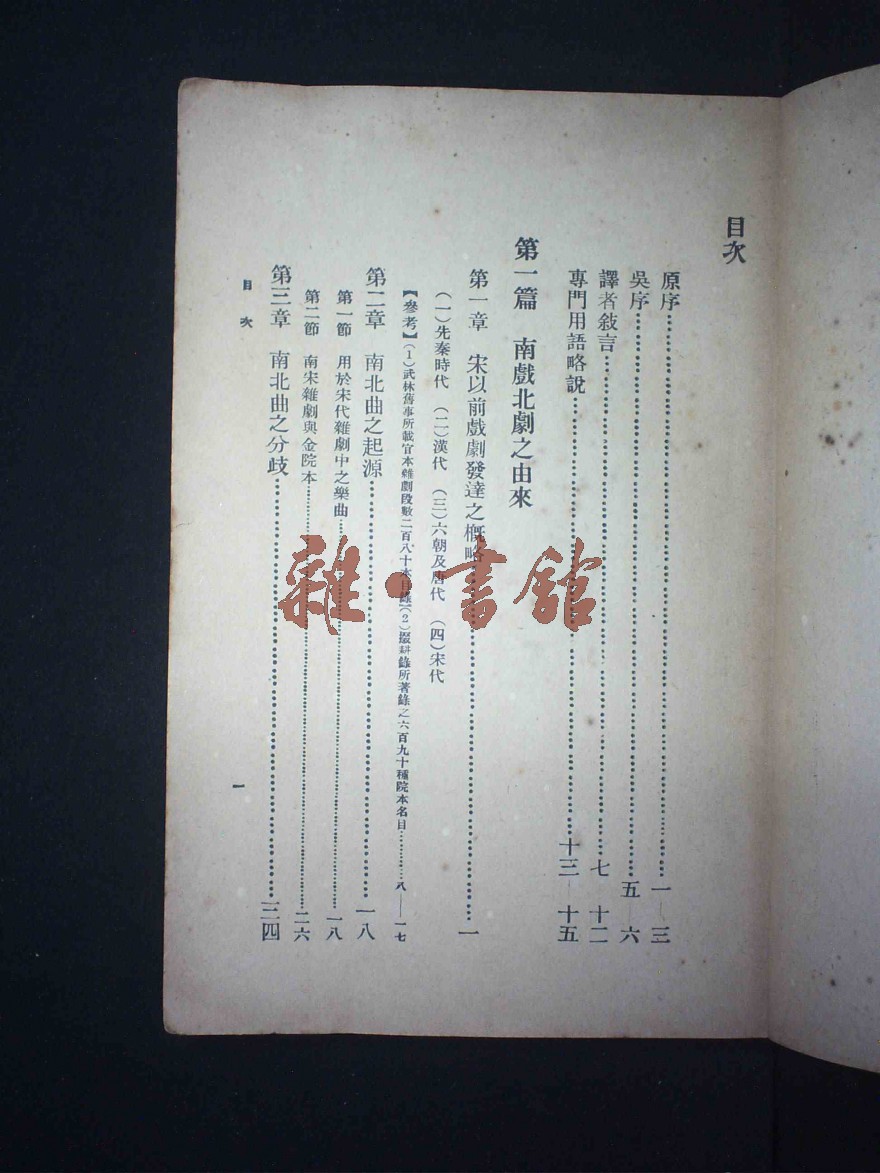 目次
原序……一—三
吳序……五—六
譯者敍言……七—十二
專門用語略說……十三—十五
第一篇 南戲北劇之由來
第一章 宋以前戲劇發達之概略……一
(一)先秦時代 (二)漢代 (三)六朝及唐代 (四)宋代
【參考】(1)武林舊事所載官本雜劇段數二百八十本目錄(2)輟耕錄所著錄之六百九十種院本名目……八—一七
第二章 南北曲之起源……一八
第一節 用於宋代雜劇中之樂曲……一八
第二節 南宋雜劇與金院本……二六
第三章 南北曲之分歧……三四
目次
一
雜·書館